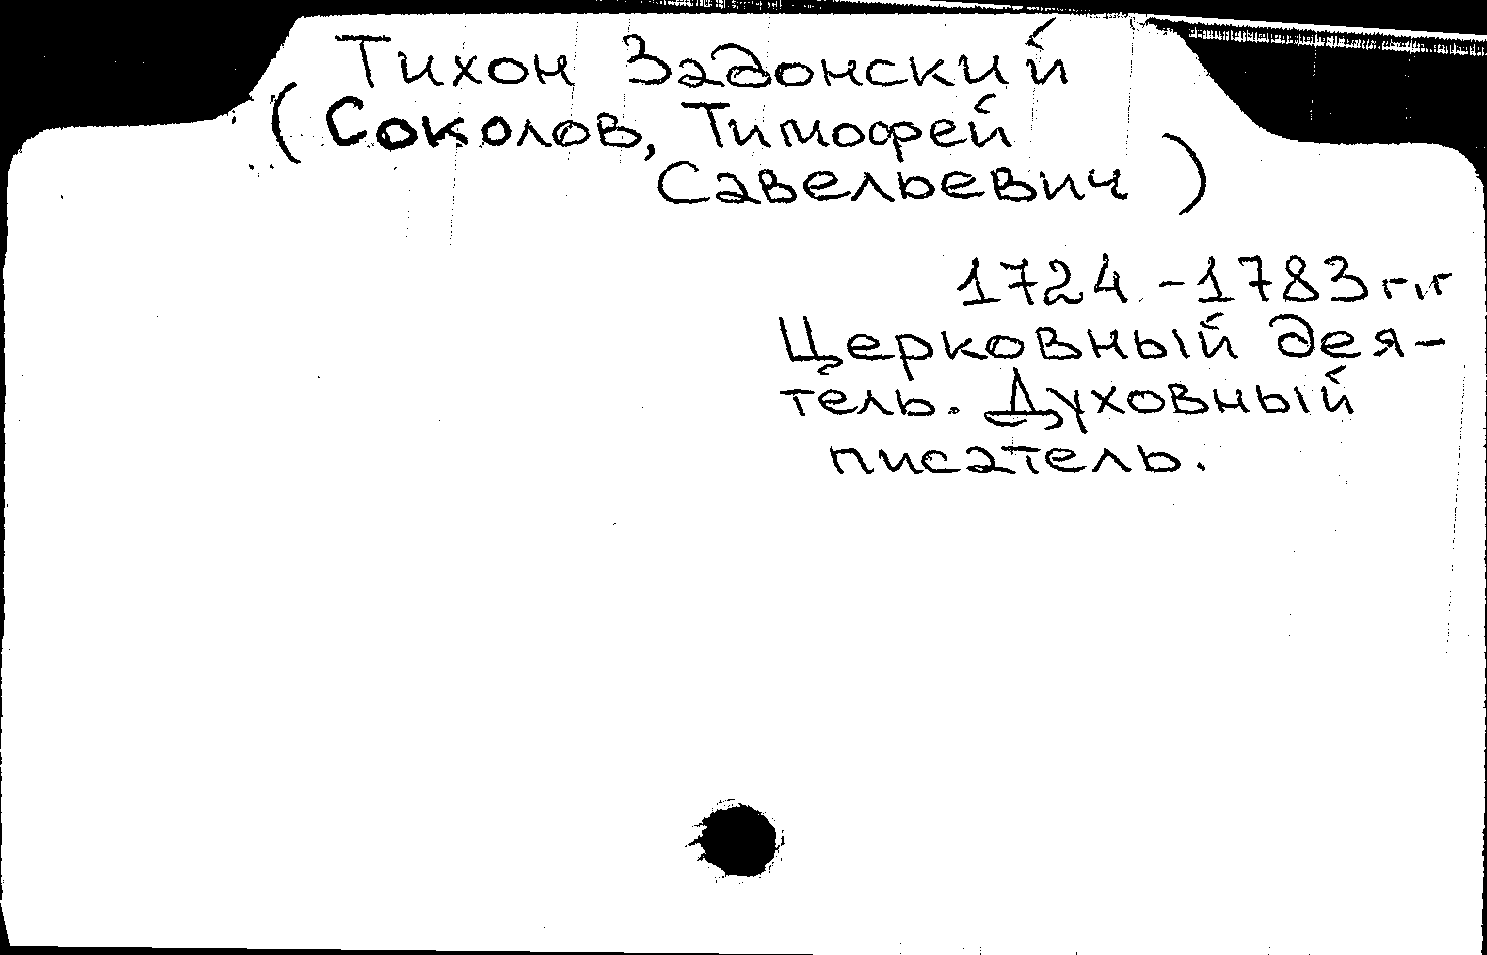 Тихон Задонский
(Соколов, Тимофей
Савельевич)
1724-1783 г.г
Церковный дея-
тель. Духовный
писатель.